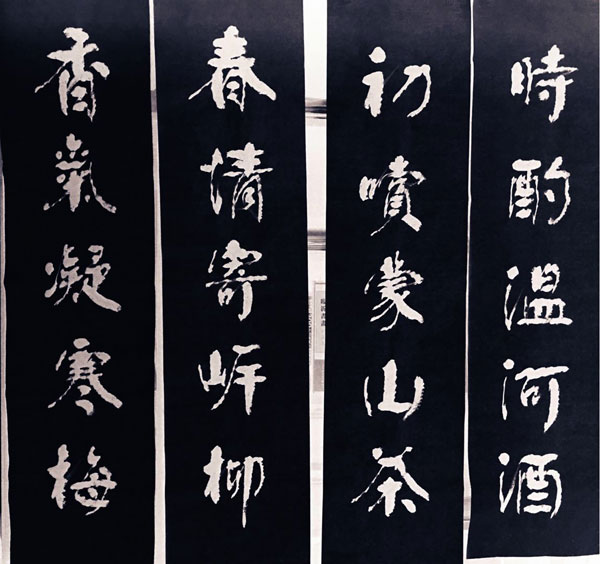 時酌溫河酒
初噴蒙山茶
春情寄岸柳
香氣凝寒梅